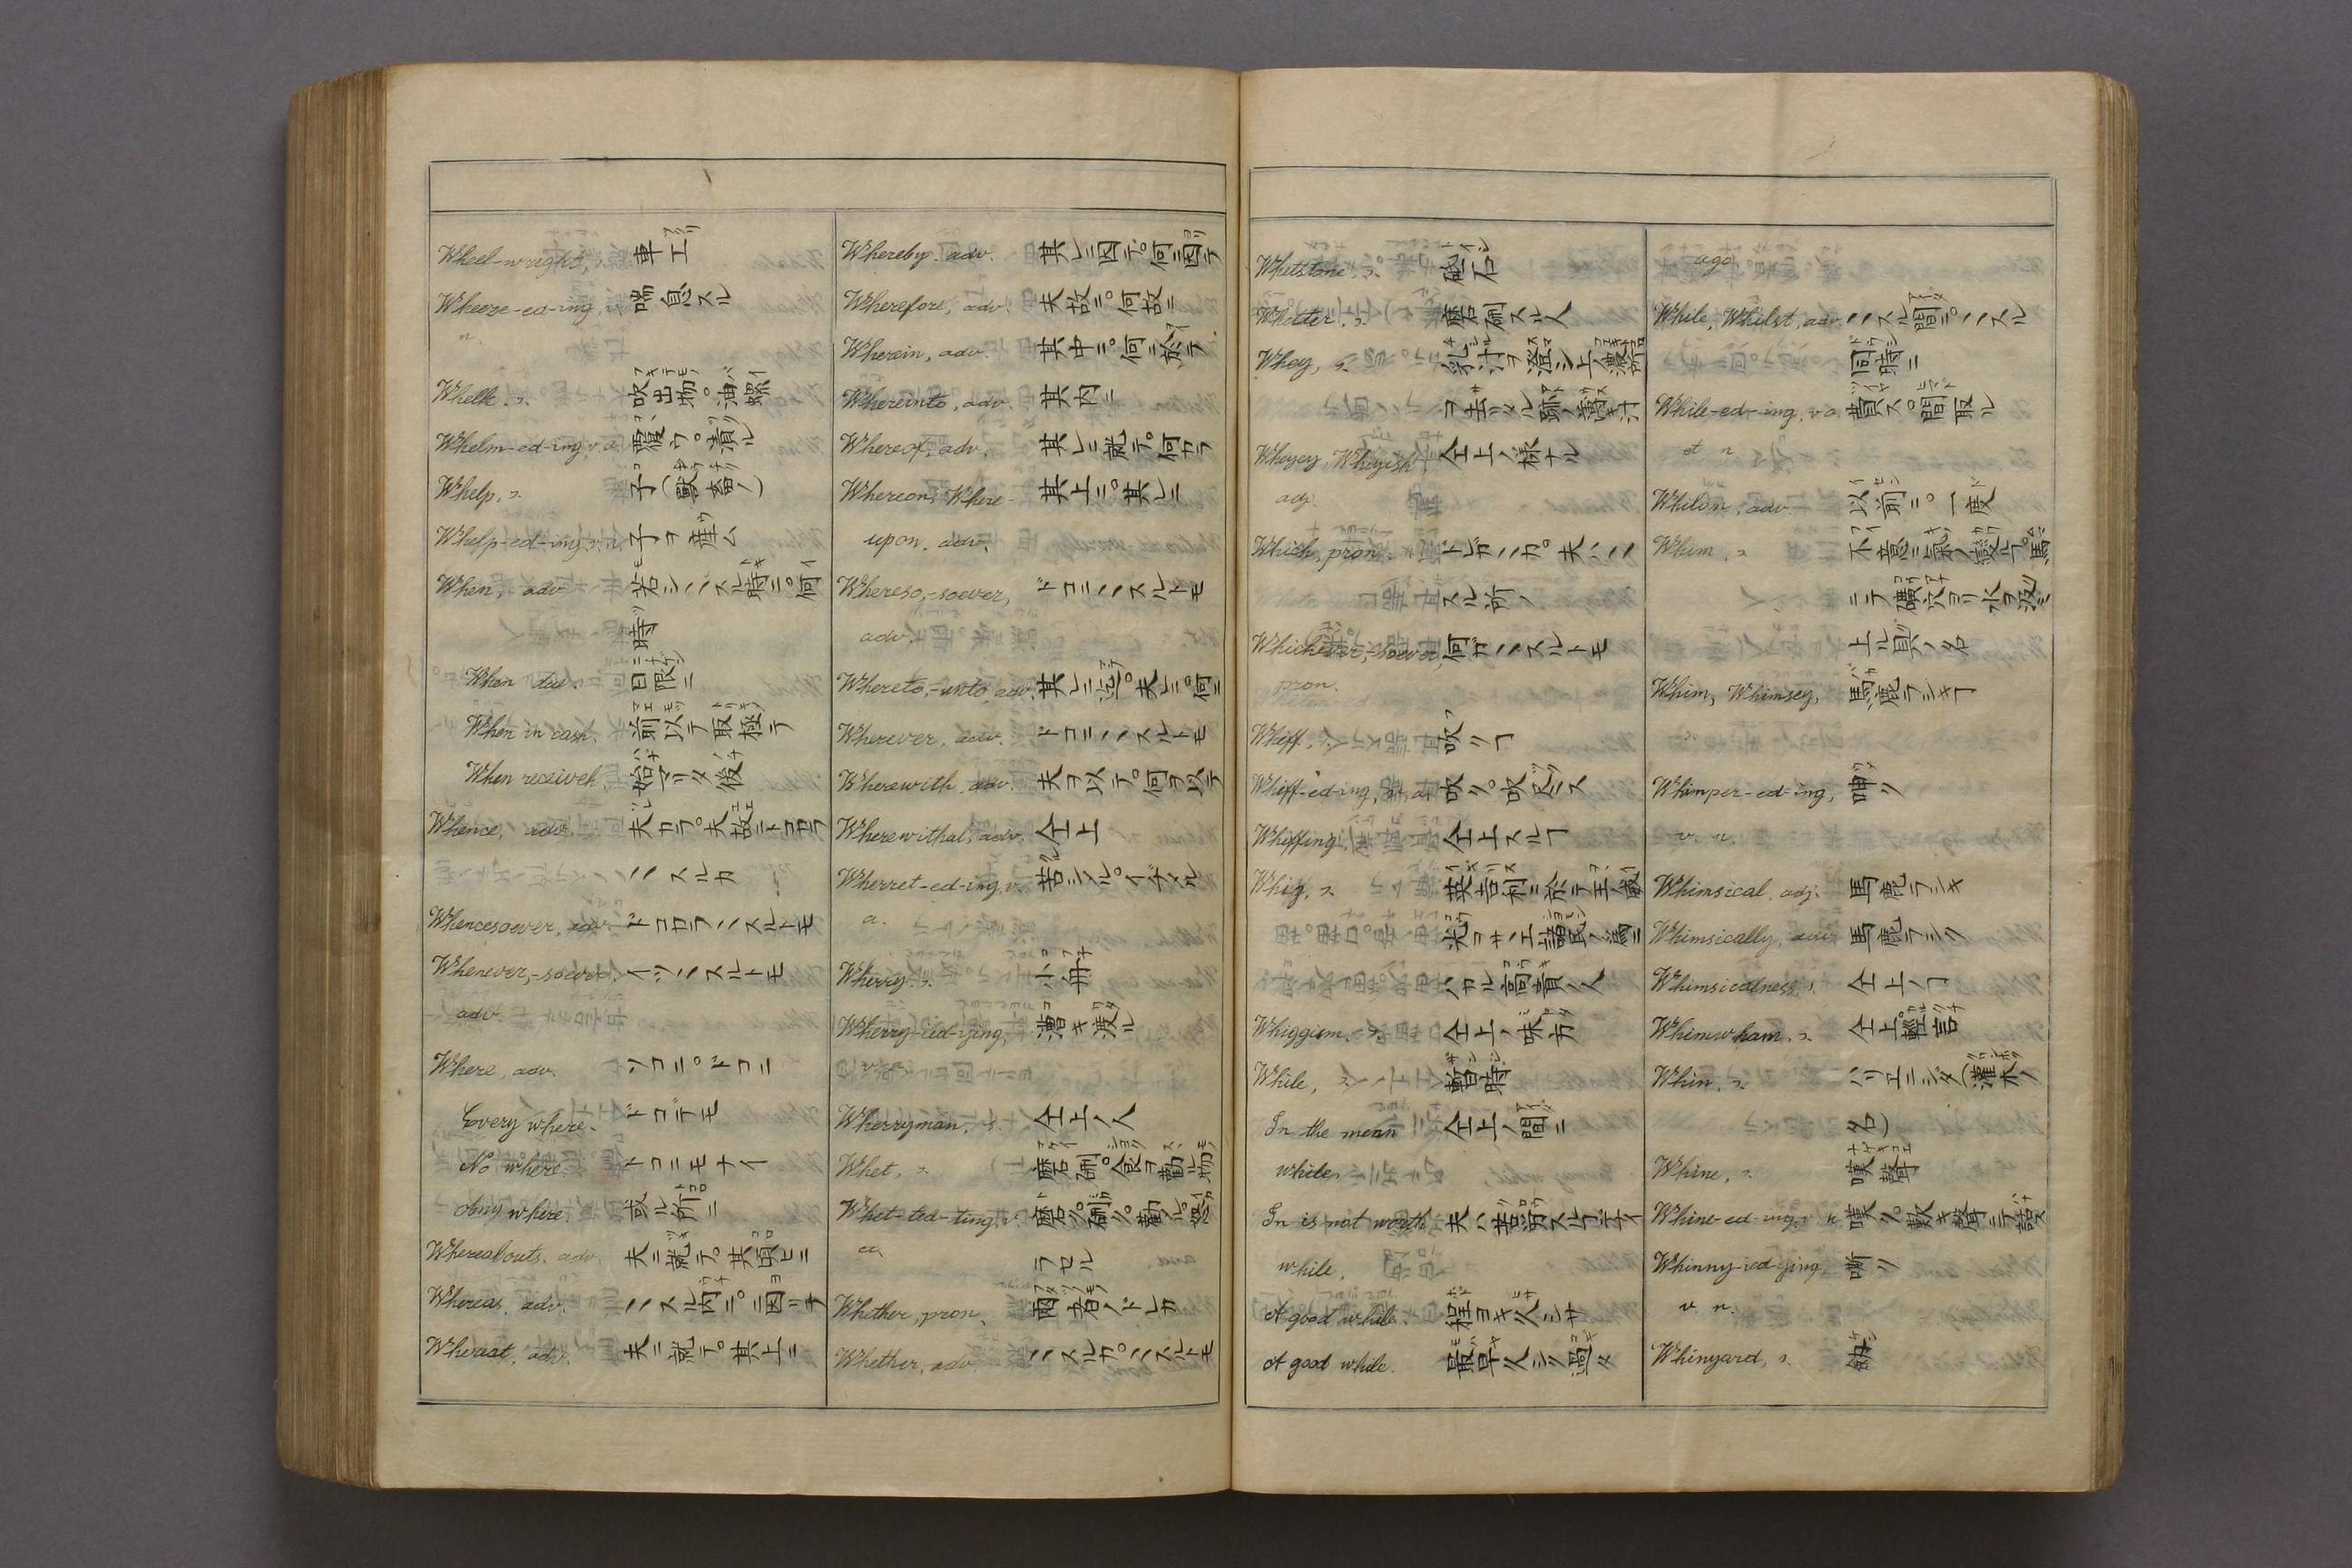 Wheel-wright, s. 車工
Wheeze-ed-ing, v. 喘息スル
n.
Whelk. s. 吹出物。海螺
Whelm-ed-ing, v. a. 覆フ。潰ル
Whelp, s. 子(獣畜ノ)
Whelp-ed-ing, v. n. 子ヲ産ム
When, adv. 若シヽスル時ニ。何
時
When due. 日限ニ
When in cash. 前以テ取極テ
When received, 始マリタ後
Whence, adv. 夫カラ。夫故ニドコカラ
ヽスルカ
Whencesoever, adv. ドコカラヽスルトモ
Whenever,-soever. イツヽスルトモ
adv.
Where, adv. ソコニ。ドコニ
Every where. ドコデモ
No where. ドコニモナイ
Any where. 或ル所ニ
Whereabouts. adv. 夫ニ就テ。其頃ヒニ
Whereas. adv. ヽスル内ニ。ニ因リテ
Whereat. adv. 夫ニ就テ。其上ニ
Whereby. adv. 其レニ因テ。何ニ因テ
Wherefore, adv. 夫故ニ。何故ニ
Wherein, adv. 其中ニ。何ニ於テ
Whereinto, adv. 其内ニ
Whereof, adv. 其レニ就テ。何カラ
Whereon, Where- 其上ニ。其レニ
upon. adv.
Whereso,-soever, ドコニヽスルトモ
adv.
Whereto,-unto, adv. 其レニ迄。夫レニ。何ニ
Wherever, adv. ドコニヽスルトモ
Wherewith, adv. 夫ヲ以テ。何ヲ以テ
Wherewithal, adv. 仝上
Wherret-ed-ing, v. 苦シメル。イヂメル
a.
Wherry. s. 小舟
Wherry-ied-ying, 漕キ渡ル
Wherryman. s. 仝上ノ人
Whet, s. 磨砌。食ヲ勸ル物
Whet-ted-ting, v. 磨ク。砌ク。勸ル。怒
a. ラセル
Whether, pron. 兩者ノドレカ
Whether, adv. ヽスルカ。ヽスルトモ
Whetstone, s. 砥石
Whetter, s. 磨砌スル人
Whey, s. 乳汁ヲ澄シ上ノ濃所
ヲ去リタル跡ノ薄キ汁
Wheyey, Wheyish 仝上ノ様ナル
adj.
Which, pron. ドレガヽカ。夫ハヽ
スル所ノ
Whichever,-soever, 何ガヽスルトモ
pron.
Whiff, s. 吹クヿ
Whiff-ed-ing, v. a. 吹ク。吹尽ス
Whiffing, 仝上スルヿ
Whig, s. 英吉利ニ於テ王威
光ヲサヽエ諸民ノ為ニ
ハカル高貴ノ人
Whiggism, s. 仝上ノ味方
While, s. 暫時
In the mean 仝上ノ間ニ
while.
In is not worth 夫ハ苦労スルデナイ
while.
A good while. 程ヨキ久シサ
A good while. 最早久シク過タ
ago
While, Whilst, adv. ヽスル間ニ。ヽスル
同時ニ
While-ed-ing, v. a. 費ス。間取ル
et n
Whilom, adv. 以前ニ。一度
Whim, s. 不意ニ氣ノ變ルヿ。馬
ニテ礦穴ヨリ水ヲ汲ミ
上ル具ノ名
Whim, Whimsey, 馬鹿ラシキヿ
s.
Whimper-ed-ing, 呻ク
v. n.
Whimsical, adj. 馬鹿ラシキ
Whimsically, adv. 馬鹿ラシク
Whimsicalness, s. 仝上ノヿ
Whimwham. s. 仝上。輕言
Whin, s. ハリエニシダ(灌木ノ
名)
Whine, s. 嘆聲
Whine-ed-ing, v. n. 嘆ク。歎キ聲ニテ話ス
Whinny-ied-ying, 嘶ク
v. n.
Whinyard, s. 劔